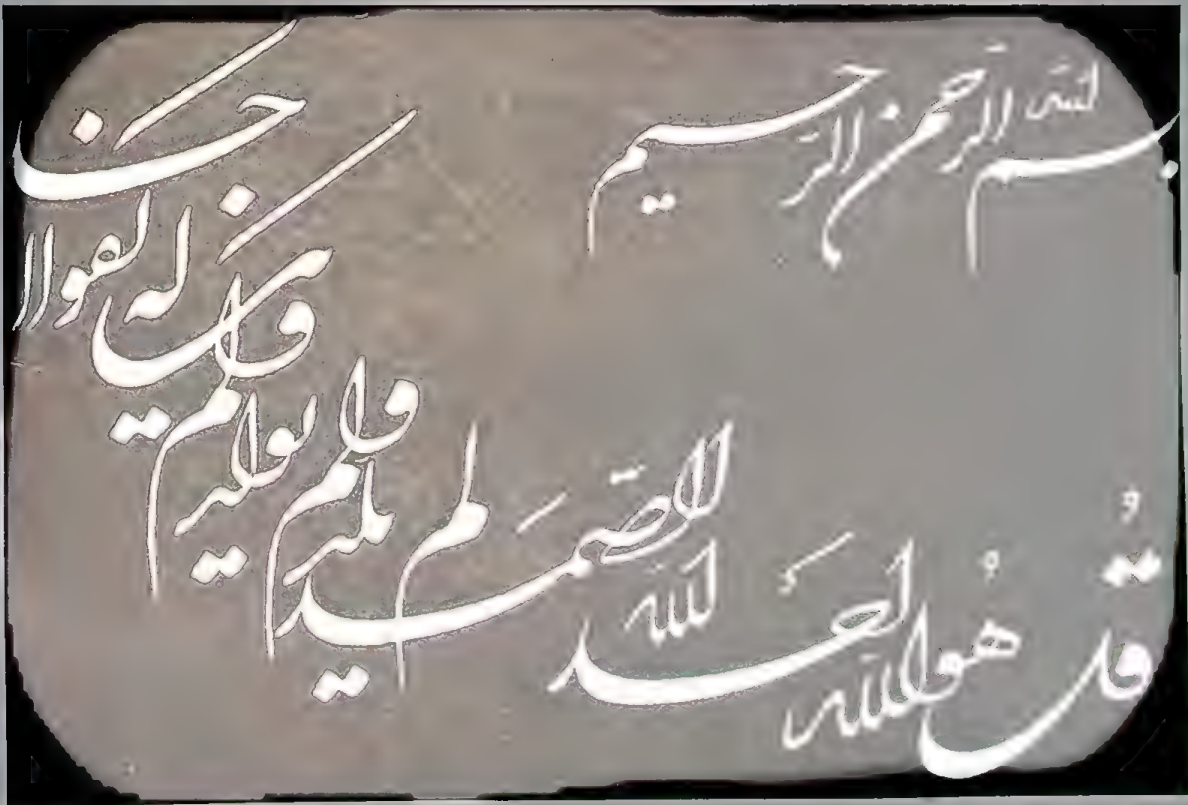 بسم الله الرحمن الرحیم
قُل هُوالله احَد
الله الصّمَد
لم یلد
ولم یولد
ولم یکن له کفوا